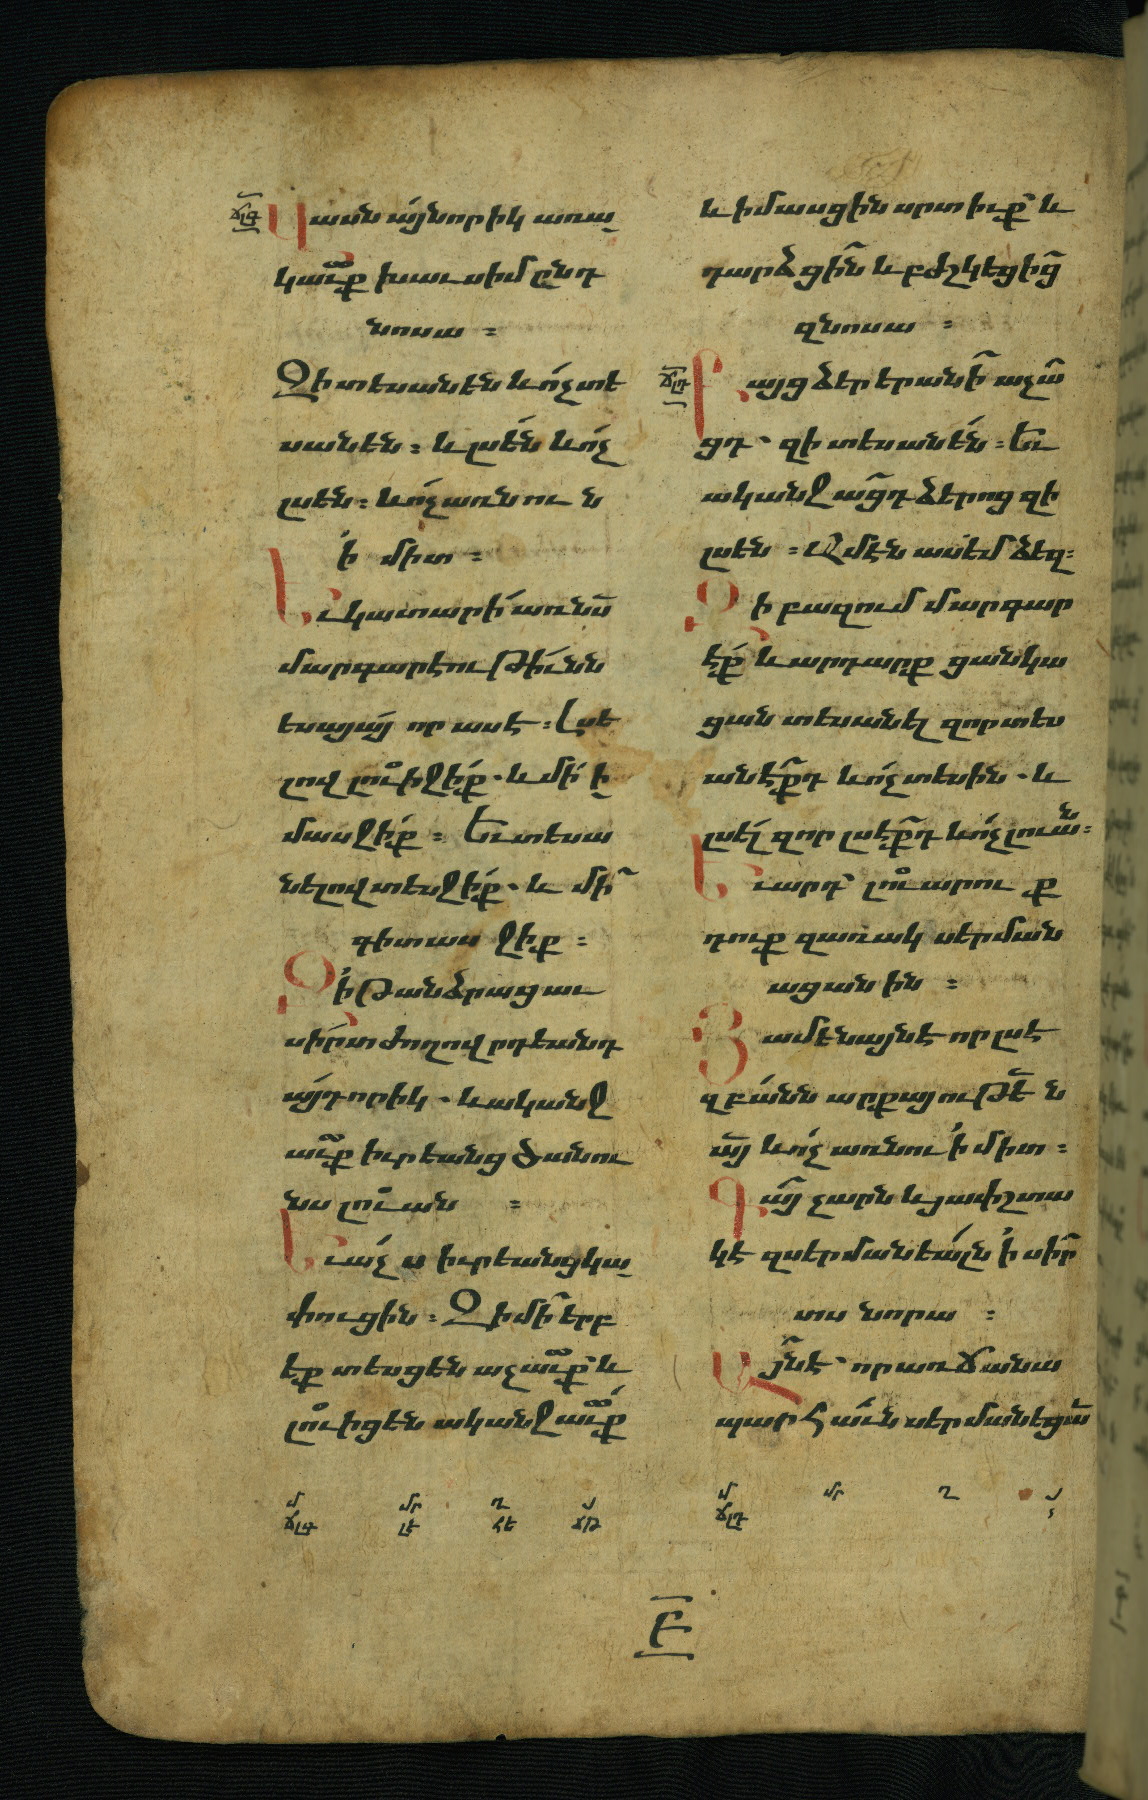 ՃԼԳ Վասն այնորիկ առա
կաւք խաւսիմ ընդ
նոսա :
Զի տեսանեն և ոչ տե
սանեն : և լսեն և ոչ
լսեն : և ոչ առնուն
ի միտ :
Եւ կատարի առ նս
մարգարէութիւնն
եսայայ որ ասէ : Լսե
լով լուիջիք . և մի ի
մասջիք : Եւ տեսա
նելով տեսջիք . և մի
գիտասջիք :
Զի թանձրացաւ
սիրտ ժողովրդեանդ
այդորիկ . և ականջ
աւք իւրեանց ծանու
նս լուան :
Եւ աչս իւրեանց կա
փուցին : Զի մի երբ
էք տեսցեն աչաւք և
լուիցեն ականջաւք
և իմասցին սրտիւք և
դարձցին և բժշկեցից
զնոսա :
ՃԼԴ Բայց ձեր երանի աչա
ցդ . զի տեսանեն : Եւ
ականջացդ ձերոց զի
լսեն : Ամէն ասեմ ձեզ :
Զի բազում մարգար
էք և արդարք ցանկա
ցան տեսանել զոր տես
անէքդ և ոչ տեսին . և
լսել զոր լսէքդ և ոչ լուան :
Եւ արդ լուարուք
դուք զառակ սերման
ացանին :
Յամենայնէ որ լսէ
զբանն արքայութե ն
այ և ոչ առնու ի միտ :
Գայ չարն և յափշտա
կէ զսերմանեալն ի սիր
տս նորա :
Այնէ որ առ ճանա
պարհաւն սերմանեցա
մ մր ղ յ
ՃԼԳ ԼԷ ՀԵ ՃԹ
մ մր ղ յ
ՃԼԴ
Բ